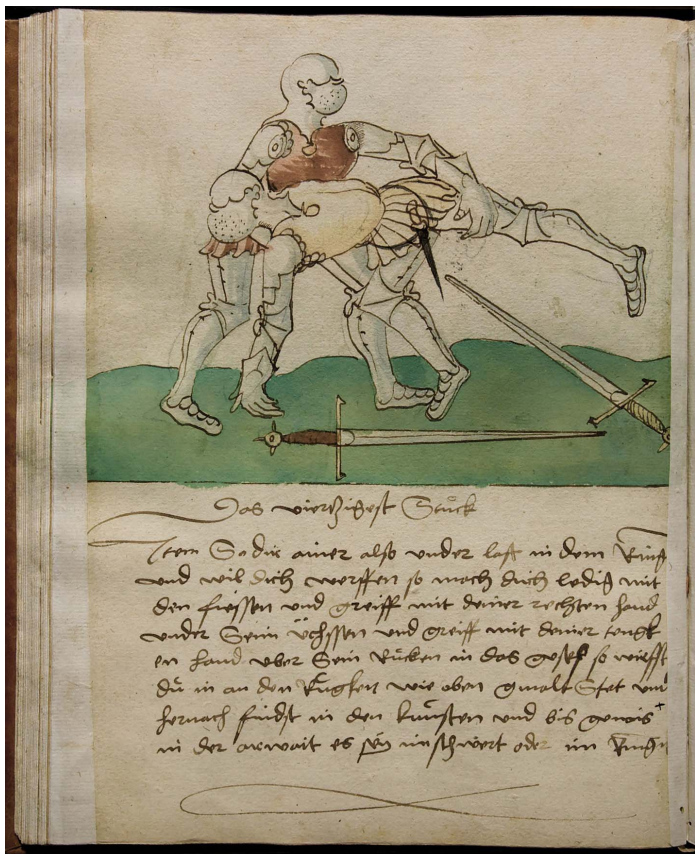 Das viertzigest Stuck
Item So dir ainer also vnder laft in dem Ring
vnd wil dich werffen so mach dich ledig mit
den fiessen vnd greiff mit deiner rechten hand
vnder Seim vchssen vnd greiff mit deiner
en hand vber Sein Rucken in das gesess so wirffst
du in an den Rugken wie oben gmalt Stet vnd
hernach findst in den kunsten vnd bis gewis
in der arwait es sey im schwert oder im